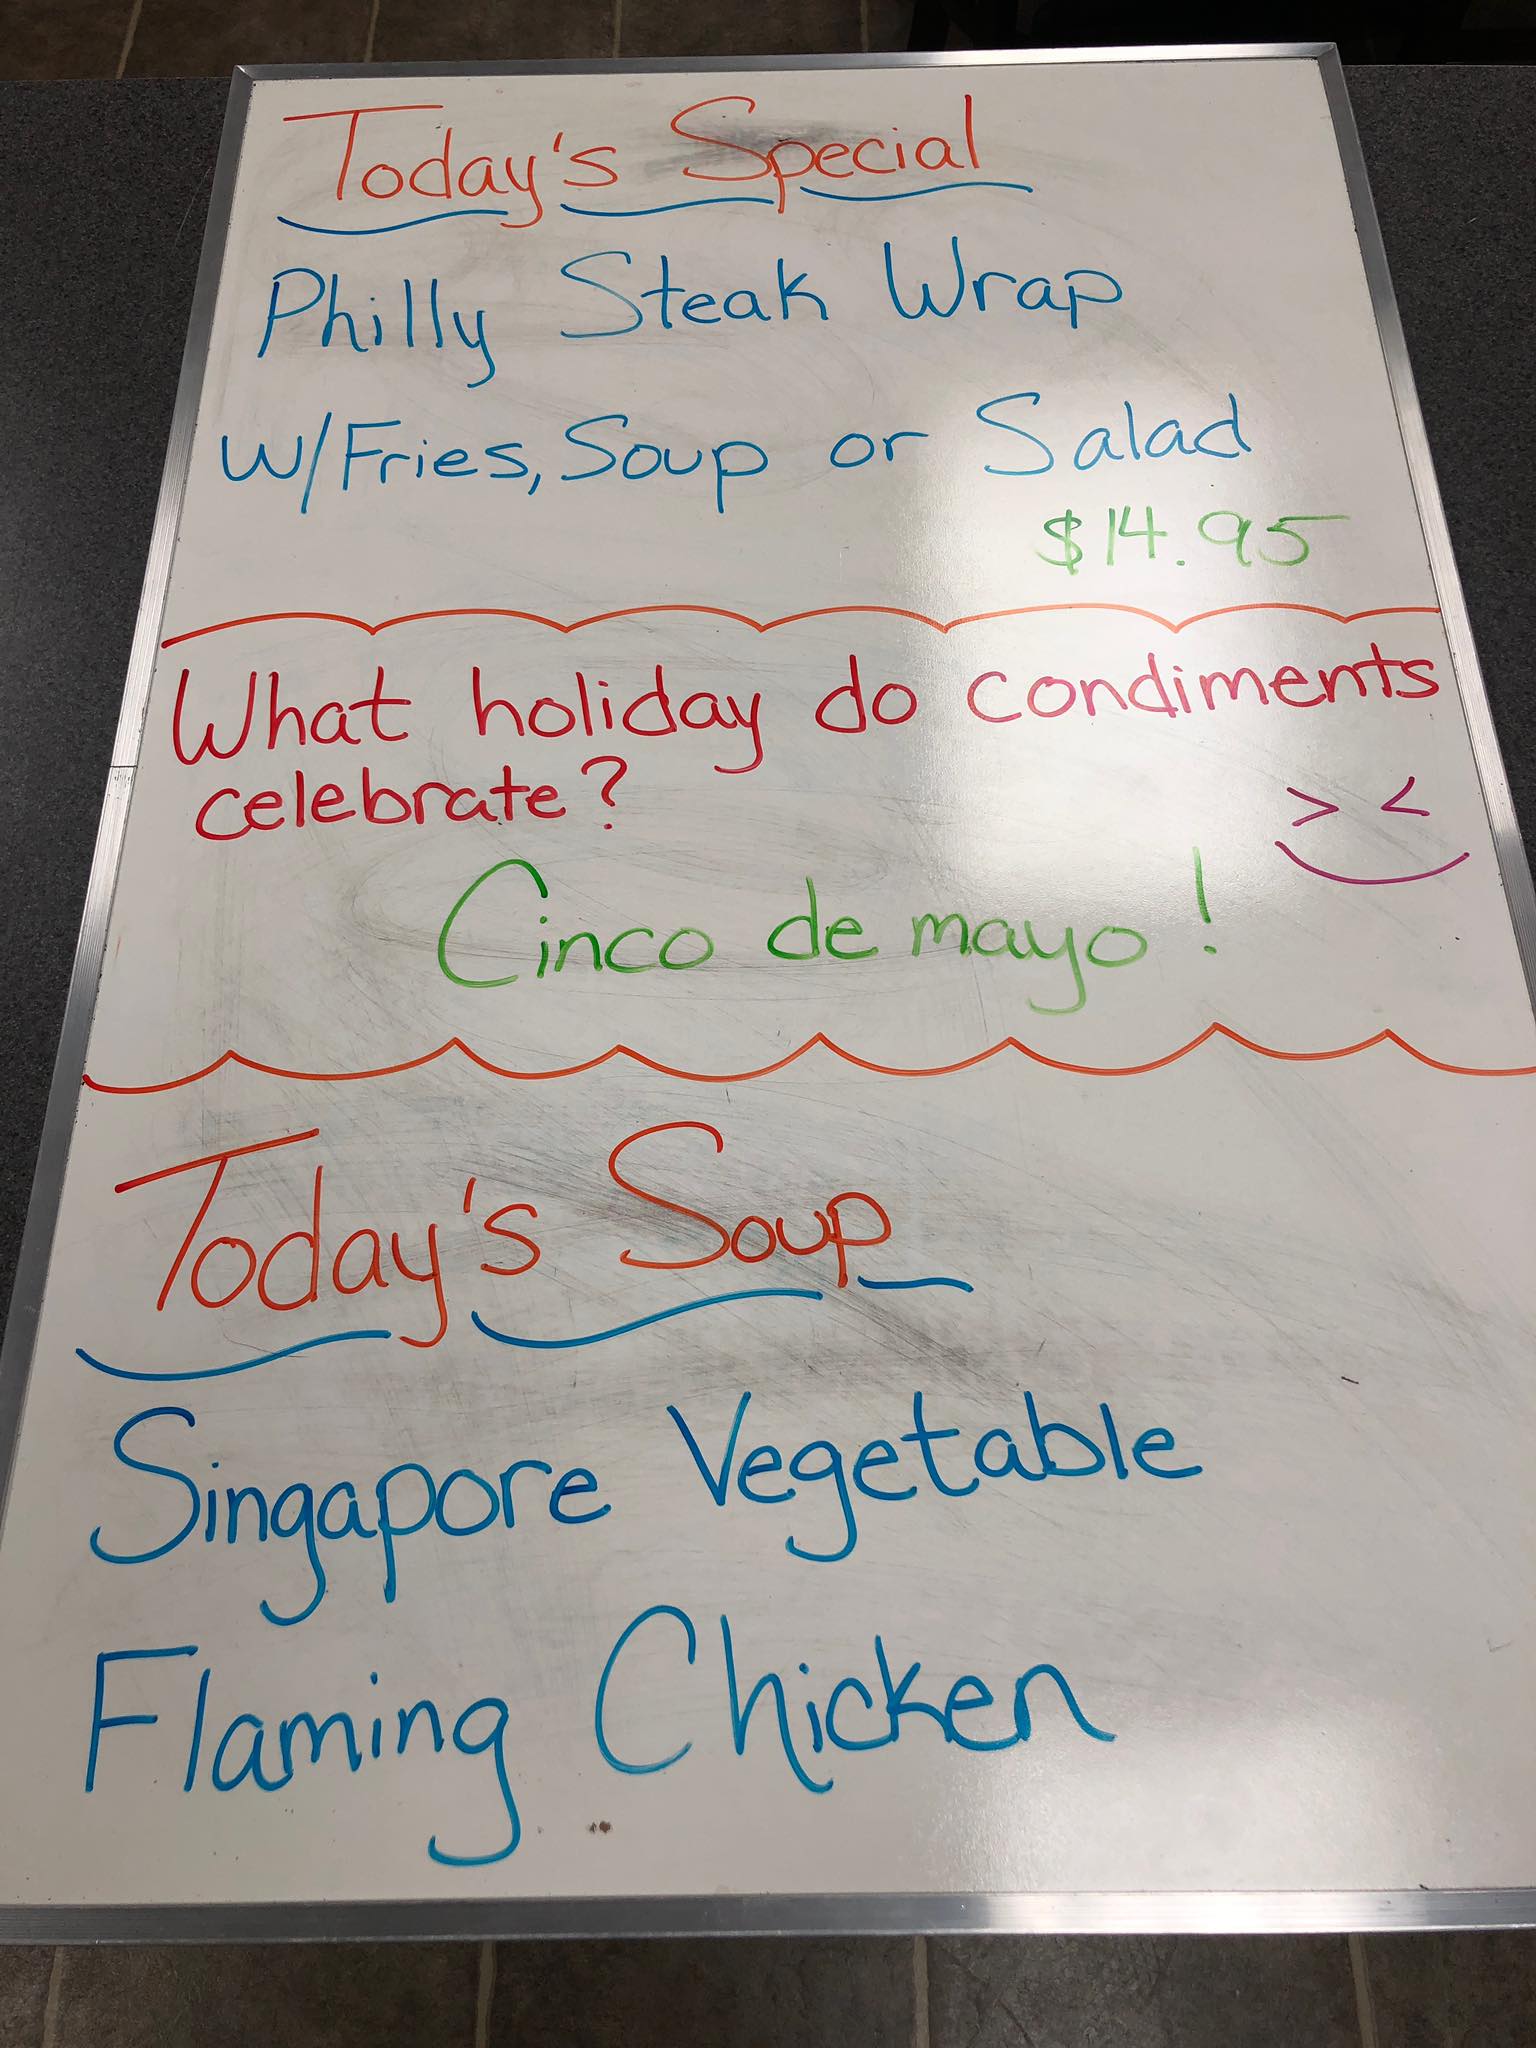 Today's Special
Philly Steak Wrap
w/Fries, Soup or Salad
$14.95
What holiday do condiments
celebrate?
Cinco de mayo!
Today's Soup
Singapore Vegetable
Flaming Chicken